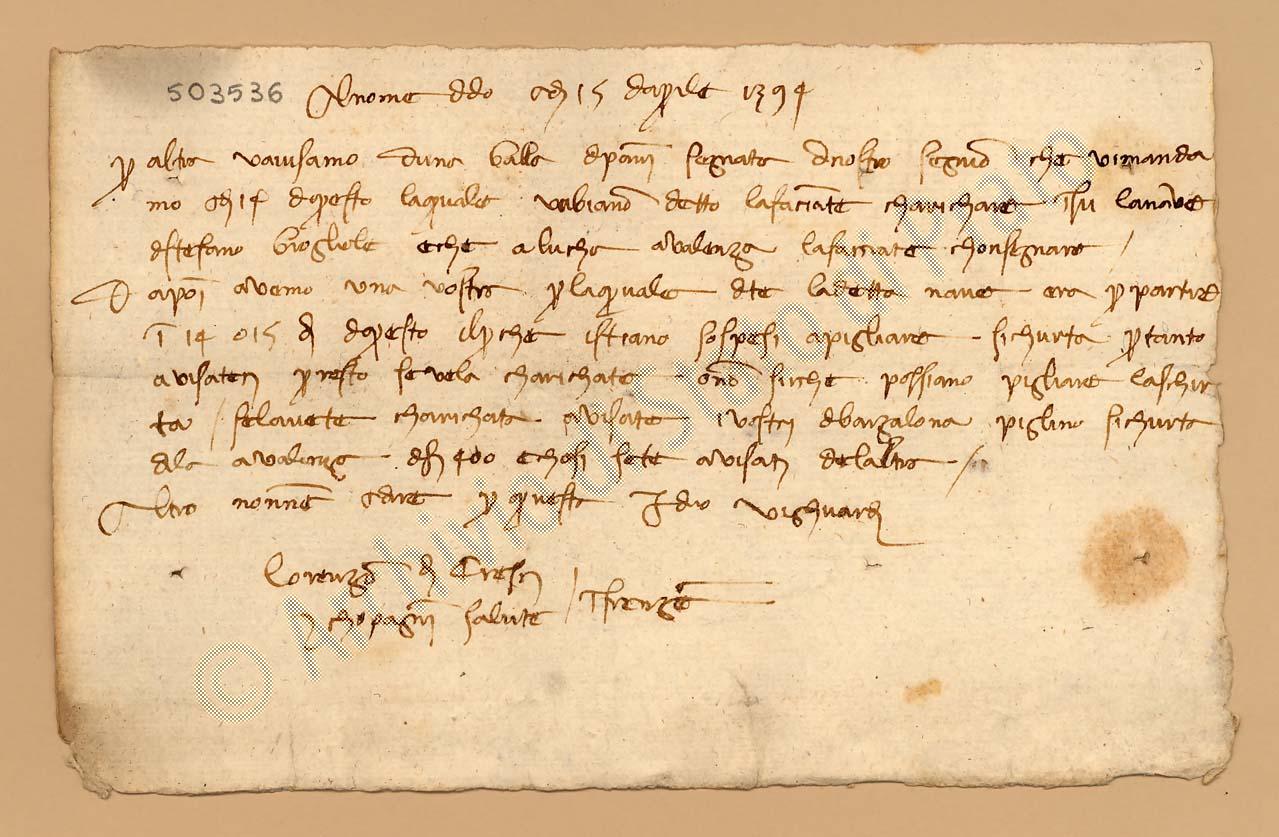 503536 Al nome d dio a dì 15 d'aprile 1394
p altra v'avisamo d'una balla d panni segnata d nostro segno che vi manda
mo a dì 15 d questo la quale v'abiano detto la faciate charichare in su la nave
d Stefano e che a Lucha a Valenza la facciate chonsegnare /
Da poi avemo una vostra p la quale dite la detta nave era p partire
i 14 o 15 dì d questo il p che istiano sospesi a pigliare sichurtà p tanto
avisateci p resto se ve l'à charichata o nò sì che possiano pigliare la sichur
tà / se l'avete charichata avisate i vostri d Barzalona piglino sichurtà
di là a Valenza di fi 400 e chosì sete avisati de l'altra /
Altro non n'è a dire p questa Idio vi ghuardi
Lorenzo di Cresci /
e chopagni salute / i Firenze
© Archivio di Stato di Prato